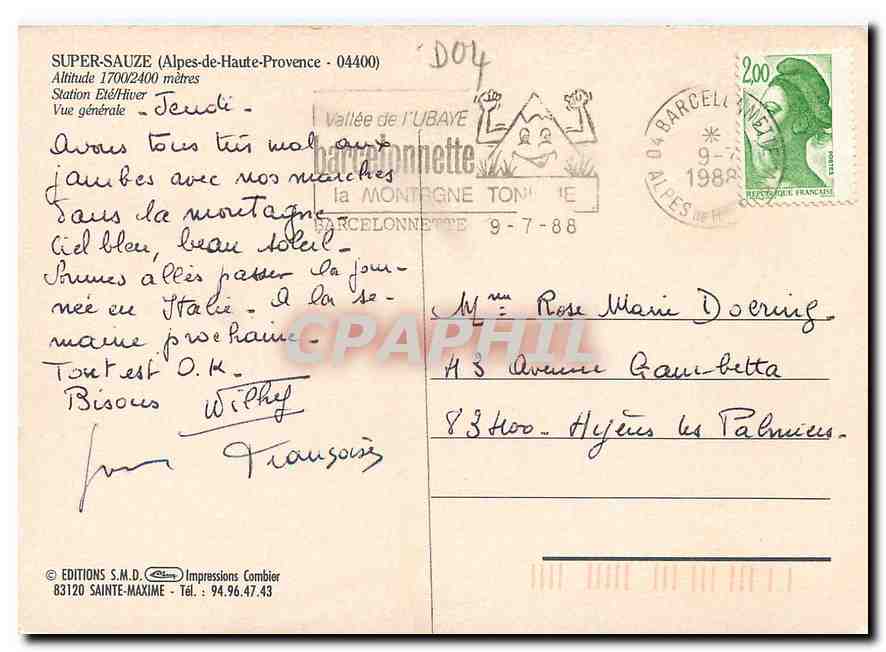 SUPER-SAUZE (Alpes-de-Haute-Provence - 04400)
Altitude 1700/2400 mètres
Station Eté/Hiver
Vue générale
D04
- Jeudi -
Avons tous très mal aux
jambes avec nos marches
dans la montagne -
Ciel bleu, beau soleil -
Sommes allés passer la jour-
née en Italie - A la se-
maine prochaine -
Tout est O.K -
Bisous Wilhy
Françoise
Vallée de l'UBAYE
barcelonnette
la MONTAGNE TONIQUE
BARCELONNETTE 9-7-88
04 BARCELONNETTE
9-7
1988
ALPES DE H
2,00
POSTES
REPUBLIQUE FRANÇAISE
Mme Rose Marie Doering -
43 Avenue Gambetta
83400 - Hyères les Palmiers -
CPAPHIL
© EDITIONS S.M.D. Impressions Combier
83120 SAINTE-MAXIME - Tél. : 94.96.47.43